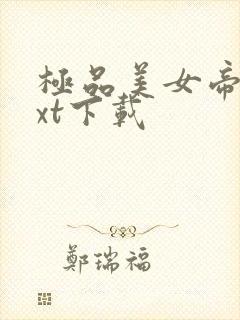 極品美女帝
xt下載
鄭瑞福